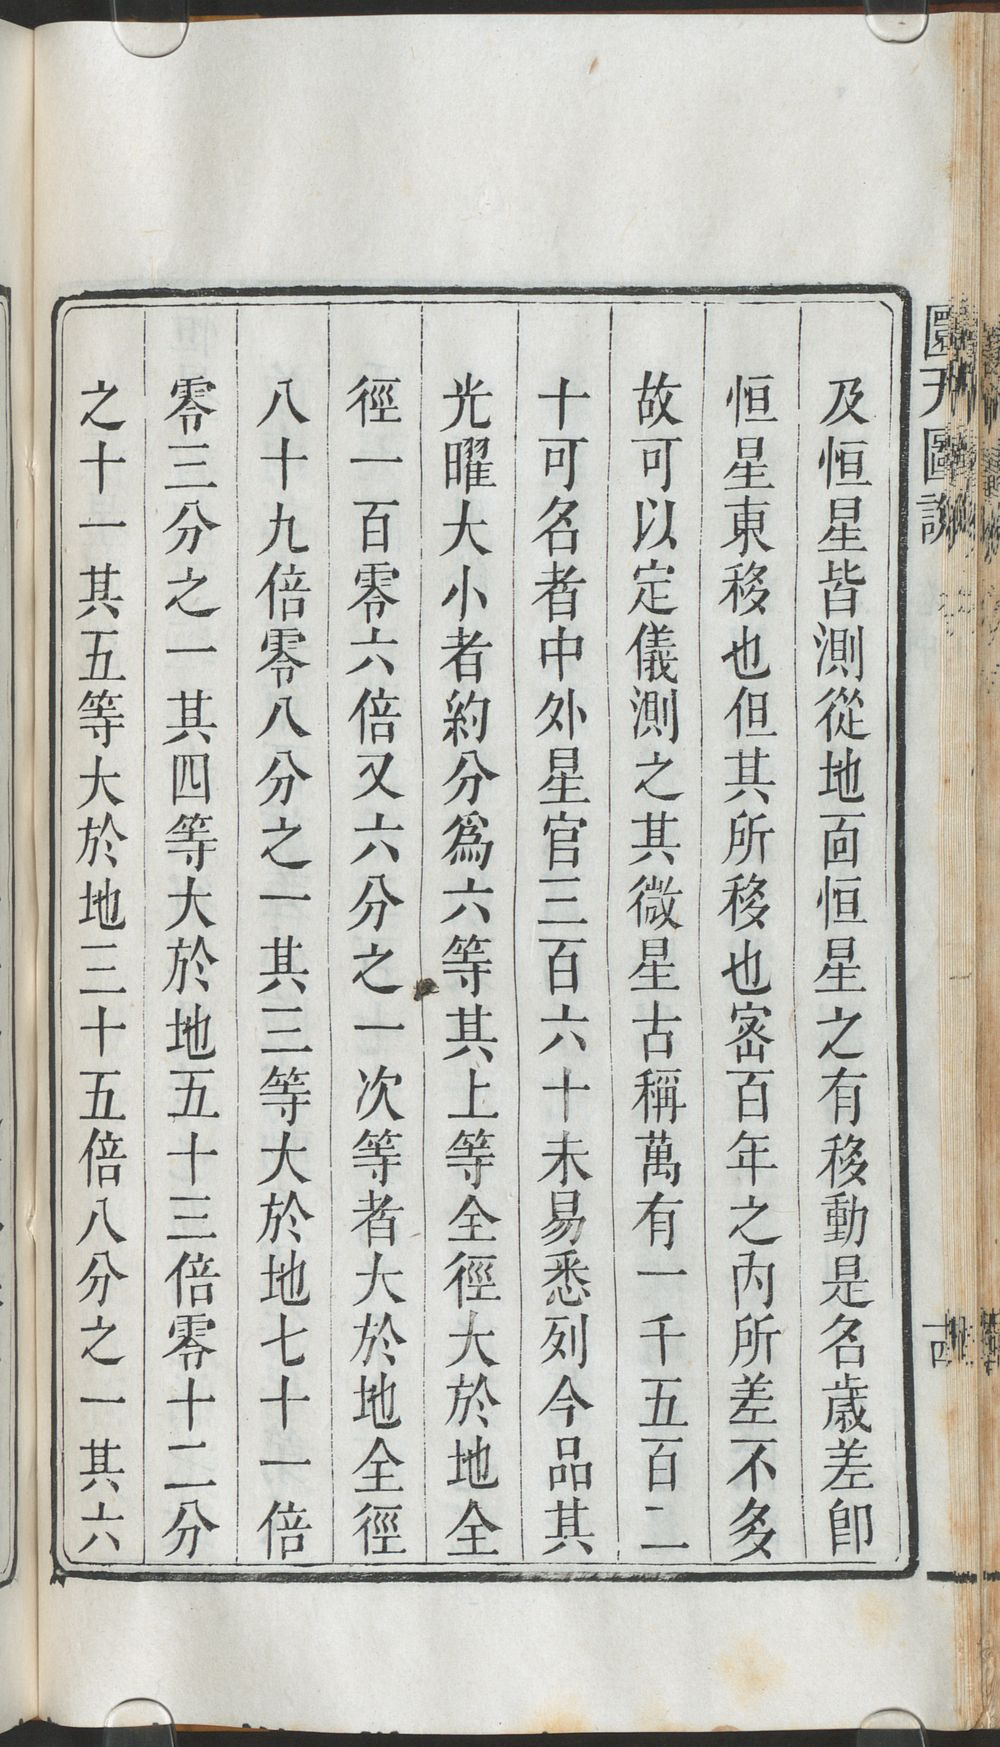 及恒星皆測從地靣恒星之有移動是名歲差卽
恒星東移也但其所移也宻百年之內所差不多
故可以定儀測之其微星古稱萬有一千五百二
十可名者中外星官三百六十未易悉列今品其
光曜大小者約分爲六等其上等全徑大於地全
徑一百零六倍又六分之一次等者大於地全徑
八十九倍零八分之一其三等大於地七十一倍
零三分之一其四等大於地五十三倍零十二分
之十一其五等大於地三十五倍八分之一其六